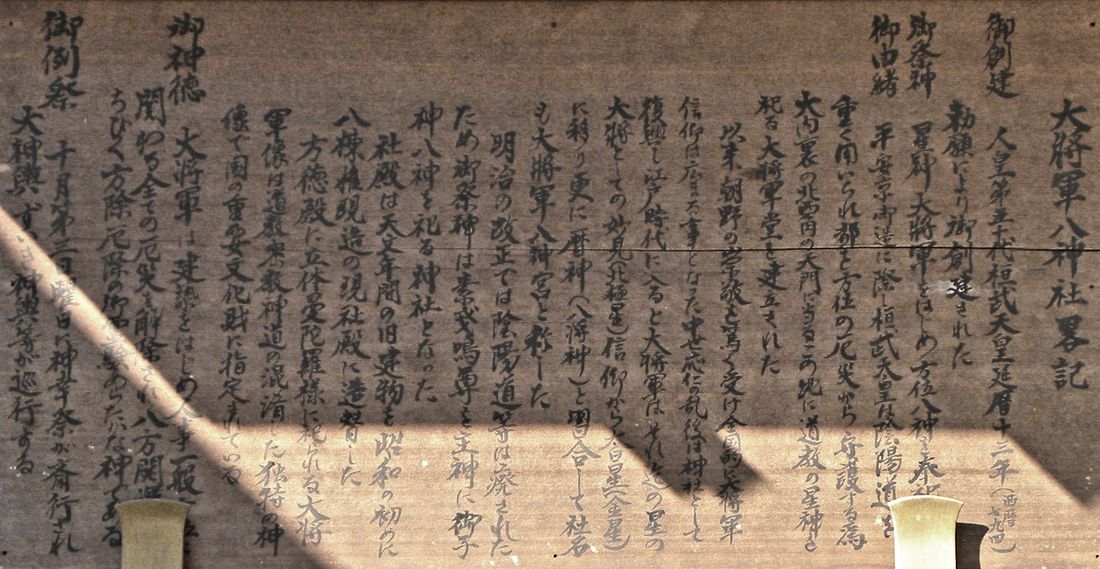 大将軍八神社畧記
御創建 人皇第五十代桓武天皇延暦十三年(西暦七九四)
勅願により御創建された
御祭神 星神大将軍をはじめ方位八神を奉
御由緒 平安京御造に際し桓武天皇は陰陽道を
重く用いられ都と方位の厄災から守護する為
大内裏の北西角の天門に当るこの地に道教の星神を
祀る大将軍堂を建立された
以来朝野の崇敬を篤く受け全国的大将軍
信仰は広まる事となった中世応仁の乱後は神社として
復興し江戸時代に入ると大将軍はそれ迄の星の
大将としての妙見(北極星)信仰から太白星(金星)
に移り更に暦神(八将神)と習合して社名
も大将軍八神宮と称した
明治の改正では陰陽道等は廃された
ため御祭神は素戔嗚尊を主神に御子
神八神を祀る神社となった
社殿は天文年間の旧建物を昭和の初めに
八棟権現造の現社殿に造替した
方徳殿に立体曼陀羅様に祀られる大将
軍像は道教密教神道の混淆した独特の神
像で国の重要文化財に指定されている
御神徳 大将軍は建築をはじめ人事一般
関わる全ての厄災を解除され八方開運
ちびく方除厄除の御神徳あらたかな神である
御例祭 十月第三日曜日に神幸祭が斎行され
大神輿 神輿等が巡行する